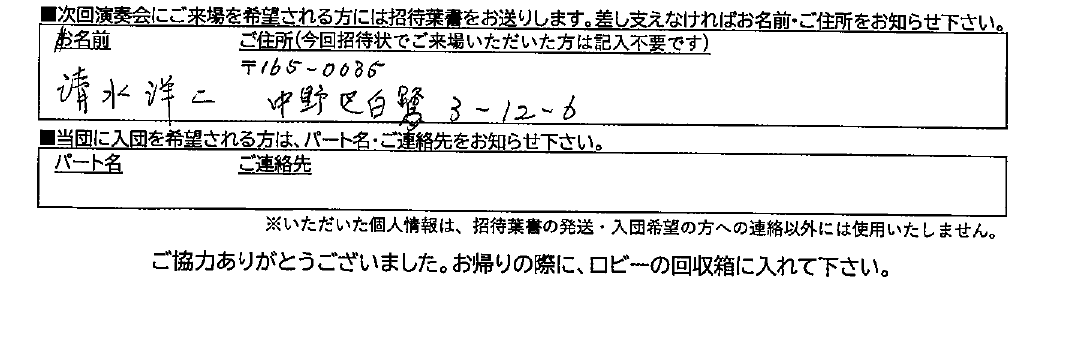 ■次回演奏会にご来場を希望される方には招待葉書をお送りします。差し支えなければお名前・ご住所をお知らせ下さい。
お名前 ご住所(今回招待状でご来場いただいた方は記入不要です)
〒165-0035
清水洋二 中野区白鷺 3-12-6
■当団に入団を希望される方は、パート名・ご連絡先をお知らせ下さい。
パート名 ご連絡先
※いただいた個人情報は、招待葉書の発送・入団希望の方への連絡以外には使用いたしません。
ご協力ありがとうございました。お帰りの際に、ロビーの回収箱に入れて下さい。